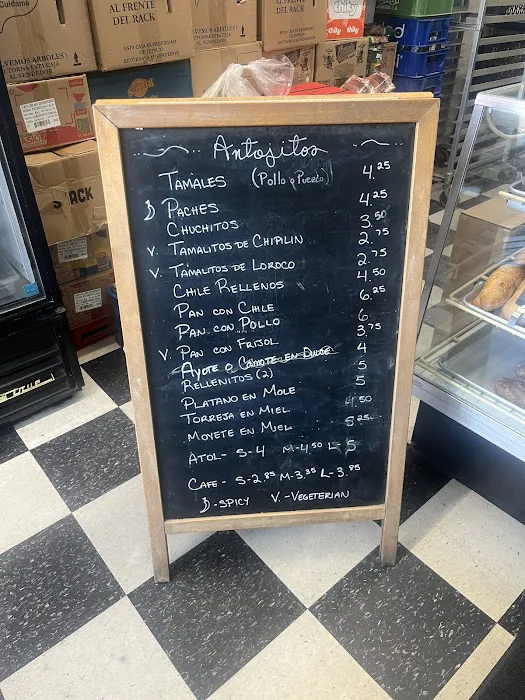 Cuídame
AL FRENTE DEL RACK
AL FRENTE DEL RACK
VEMOS ARBOLES!
TORNA ESTA CAJA AL VENDEDOR
ESTA CAJA ES PRODUCTO
ACK
Chily
Chily
Chily
Antojitos
TAMALES (Pollo o Puerco) 4.25
PACHES 4.25
CHUCHITOS 3.50
V. TAMALITOS DE CHIPILIN 2.75
V. TAMALITOS DE LOROCO 2.75
CHILE RELLENOS 4.50
PAN CON CHILE 6.25
PAN CON POLLO 6
V. PAN CON FRIJOL 3.75
AYOTE O CAMOTE EN DULCE 4
RELLENITOS (2) 5
PLATANO EN MOLE 5
TORREJA EN MIEL 4.50
MOYETE EN MIEL 5.25
ATOL- S-4 M-4.50 L-5
CAFE- S-2.85 M-3.35 L-3.85
-SPICY V.-VEGETERIAN
TRUE